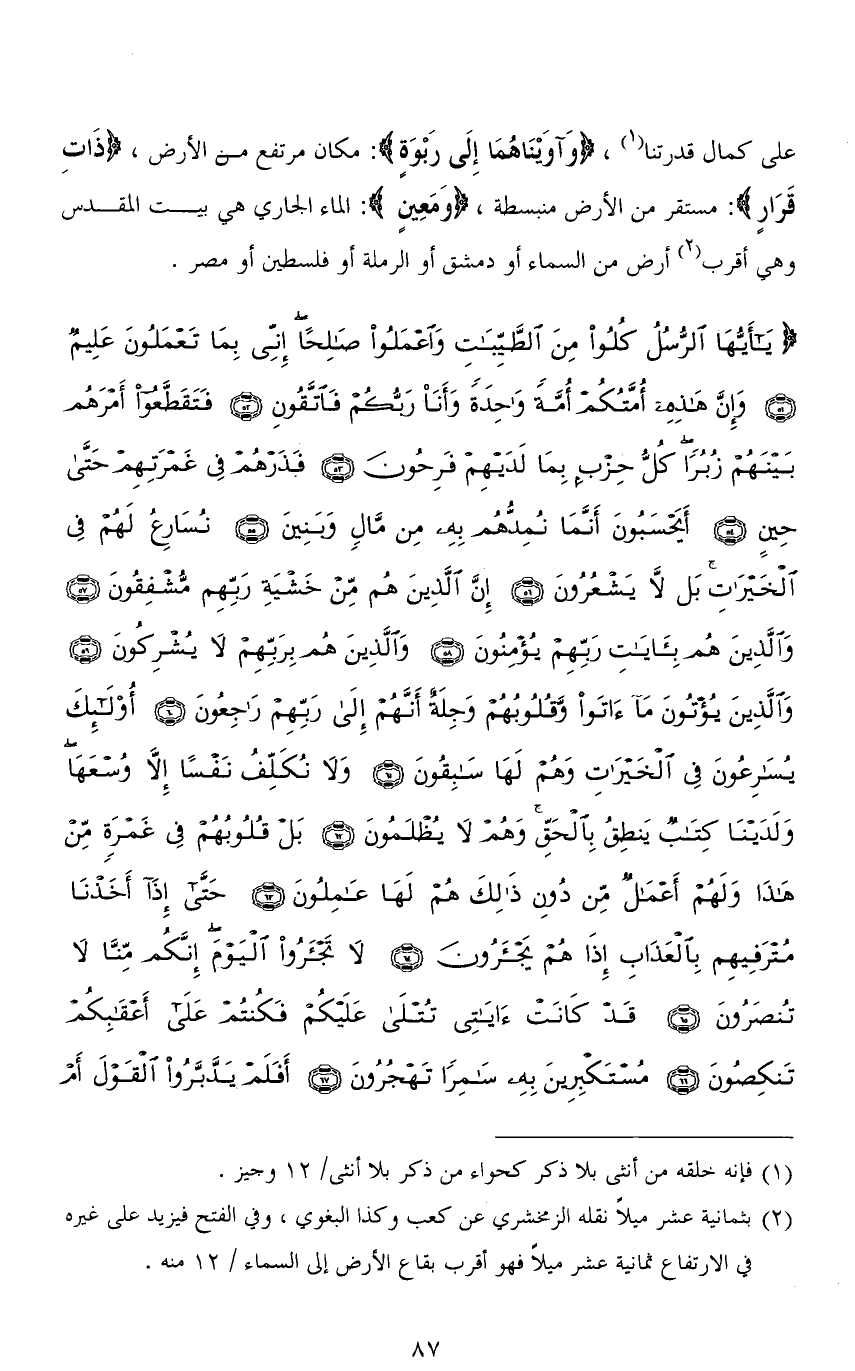 على كمال قدرتنا(١) ، ﴿وَآوَيْنَاهُمَا إِلَى رَبْوَةٍ﴾: مكان مرتفع من الأرض ، ﴿ذَاتِ
قَرَارٍ﴾: مستقر من الأرض منبسطة ، ﴿وَمَعِينٍ﴾: الماء الجاري هي بيت المقدس
وهي أقرب(٢) أرض من السماء أو دمشق أو الرملة أو فلسطين أو مصر .
﴿ يَـٰٓأَيُّهَا ٱلرُّسُلُ كُلُوا۟ مِنَ ٱلطَّيِّبَـٰتِ وَٱعْمَلُوا۟ صَـٰلِحًا ۖ إِنِّى بِمَا تَعْمَلُونَ عَلِيمٌ
٥١ وَإِنَّ هَـٰذِهِۦٓ أُمَّتُكُمْ أُمَّةً وَٰحِدَةً وَأَنَا۠ رَبُّكُمْ فَٱتَّقُونِ ٥٢ فَتَقَطَّعُوٓا۟ أَمْرَهُم
بَيْنَهُمْ زُبُرًا ۖ كُلُّ حِزْبٍۭ بِمَا لَدَيْهِمْ فَرِحُونَ ٥٣ فَذَرْهُمْ فِى غَمْرَتِهِمْ حَتَّىٰ
حِينٍ ٥٤ أَيَحْسَبُونَ أَنَّمَا نُمِدُّهُم بِهِۦ مِن مَّالٍ وَبَنِينَ ٥٥ نُسَارِعُ لَهُمْ فِى
ٱلْخَيْرَٰتِ ۚ بَل لَّا يَشْعُرُونَ ٥٦ إِنَّ ٱلَّذِينَ هُم مِّنْ خَشْيَةِ رَبِّهِم مُّشْفِقُونَ ٥٧
وَٱلَّذِينَ هُم بِـَٔايَـٰتِ رَبِّهِمْ يُؤْمِنُونَ ٥٨ وَٱلَّذِينَ هُم بِرَبِّهِمْ لَا يُشْرِكُونَ ٥٩
وَٱلَّذِينَ يُؤْتُونَ مَآ ءَاتَوا۟ وَّقُلُوبُهُمْ وَجِلَةٌ أَنَّهُمْ إِلَىٰ رَبِّهِمْ رَٰجِعُونَ ٦٠ أُو۟لَـٰٓئِكَ
يُسَـٰرِعُونَ فِى ٱلْخَيْرَٰتِ وَهُمْ لَهَا سَـٰبِقُونَ ٦١ وَلَا نُكَلِّفُ نَفْسًا إِلَّا وُسْعَهَا ۖ
وَلَدَيْنَا كِتَـٰبٌ يَنطِقُ بِٱلْحَقِّ ۚ وَهُمْ لَا يُظْلَمُونَ ٦٢ بَلْ قُلُوبُهُمْ فِى غَمْرَةٍ مِّنْ
هَـٰذَا وَلَهُمْ أَعْمَـٰلٌ مِّن دُونِ ذَٰلِكَ هُمْ لَهَا عَـٰمِلُونَ ٦٣ حَتَّىٰٓ إِذَآ أَخَذْنَا
مُتْرَفِيهِم بِٱلْعَذَابِ إِذَا هُمْ يَجْـَٔرُونَ ٦٤ لَا تَجْـَٔرُوا۟ ٱلْيَوْمَ ۖ إِنَّكُم مِّنَّا لَا
تُنصَرُونَ ٦٥ قَدْ كَانَتْ ءَايَـٰتِى تُتْلَىٰ عَلَيْكُمْ فَكُنتُمْ عَلَىٰٓ أَعْقَـٰبِكُمْ
تَنكِصُونَ ٦٦ مُسْتَكْبِرِينَ بِهِۦ سَـٰمِرًا تَهْجُرُونَ ٦٧ أَفَلَمْ يَدَّبَّرُوا۟ ٱلْقَوْلَ أَمْ
(١) فإنه خلقه من أنثى بلا ذكر كحواء من ذكر بلا أنثى/ ١٢ وجيز .
(٢) بثمانية عشر ميلاً نقله الزمخشري عن كعب وكذا البغوي ، وفي الفتح فيزيد على غيره
في الارتفاع ثمانية عشر ميلاً فهو أقرب بقاع الأرض إلى السماء / ١٢ منه .
٨٧